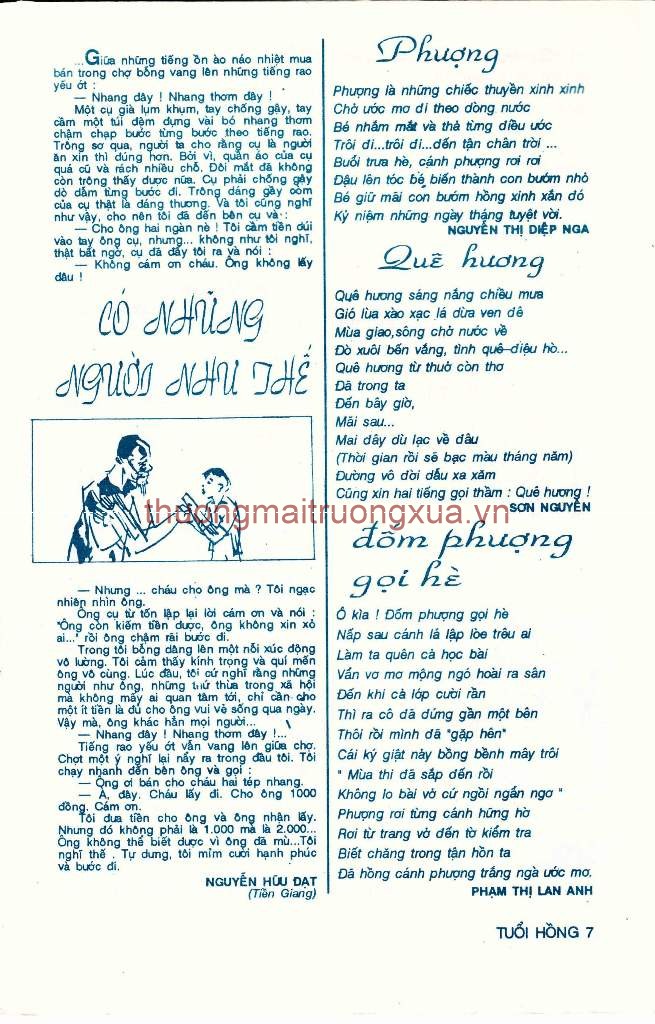 ...Giữa những tiếng ồn ào náo nhiệt mua
bán trong chợ bỗng vang lên những tiếng rao
yếu ớt :
— Nhang đây ! Nhang thơm đây !
Một cụ già lụm khụm, tay chống gậy, tay
cầm một túi đệm đựng vài bó nhang thơm
chậm chạp bước từng bước theo tiếng rao.
Trông sơ qua, người ta cho rằng cụ là người
ăn xin thì đúng hơn. Bởi vì, quần áo của cụ
quá cũ và rách nhiều chỗ. Đôi mắt đã không
còn trông thấy được nữa. Cụ phải chống gậy
dò dẫm từng bước đi. Trông dáng gầy ốm
của cụ thật là đáng thương. Và tôi cũng nghĩ
như vậy, cho nên tôi đã đến bên cụ và :
— Cho ông hai ngàn nè ! Tôi cầm tiền dúi
vào tay ông cụ, nhưng... không như tôi nghĩ,
thật bất ngờ, cụ đã đẩy tôi ra và nói :
— Không cám ơn cháu. Ông không lấy
đâu !
CÓ NHỮNG
NGƯỜI NHƯ THẾ
— Nhưng ... cháu cho ông mà ? Tôi ngạc
nhiên nhìn ông.
Ông cụ từ tốn lập lại lời cám ơn và nói :
"Ông còn kiếm tiền được, ông không xin xỏ
ai..." rồi ông chậm rãi bước đi.
Trong tôi bỗng dâng lên một nỗi xúc động
vô lường. Tôi cảm thấy kính trọng và quí mến
ông vô cùng. Lúc đầu, tôi cứ nghĩ rằng những
người như ông, những thứ thừa trong xã hội
mà không mấy ai quan tâm tới, chỉ cần cho
một ít tiền là đủ cho ông vui vẻ sống qua ngày.
Vậy mà, ông khác hẳn mọi người...
— Nhang đây ! Nhang thơm đây !...
Tiếng rao yếu ớt vẫn vang lên giữa chợ.
Chợt một ý nghĩ lại nẩy ra trong đầu tôi. Tôi
chạy nhanh đến bên ông và gọi :
— Ông ơi bán cho cháu hai tép nhang.
— À, đây. Cháu lấy đi. Cho ông 1000
đồng. Cám ơn.
Tôi đưa tiền cho ông và ông nhận lấy.
Nhưng đó không phải là 1.000 mà là 2.000...
Ông không thể biết được vì ông đã mù...Tôi
nghĩ thế . Tự dưng, tôi mỉm cười hạnh phúc
và bước đi.
NGUYỄN HỮU ĐẠT
(Tiền Giang)
Phượng
Phượng là những chiếc thuyền xinh xinh
Chở ước mơ đi theo dòng nước
Bé nhắm mắt và thả từng điều ước
Trôi đi...trôi đi...đến tận chân trời ...
Buổi trưa hè, cánh phượng rơi rơi
Đậu lên tóc bé biến thành con bướm nhỏ
Bé giữ mãi con bướm hồng xinh xắn đó
Kỷ niệm những ngày tháng tuyệt vời.
NGUYỄN THỊ DIỆP NGA
Quê hương
Quê hương sáng nắng chiều mưa
Gió lùa xào xạc lá dừa ven đê
Mùa giao,sông chở nước về
Đò xuôi bến vắng, tình quê-điệu hò...
Quê hương từ thuở còn thơ
Đã trong ta
Đến bây giờ,
Mãi sau...
Mai đây dù lạc về đâu
(Thời gian rồi sẽ bạc màu tháng năm)
Đường vô đời dẫu xa xăm
Cũng xin hai tiếng gọi thầm : Quê hương !
SƠN NGUYÊN
đốm phượng
gọi hè
Ô kìa ! Đốm phượng gọi hè
Nấp sau cánh lá lập lòe trêu ai
Làm ta quên cả học bài
Vẩn vơ mơ mộng ngó hoài ra sân
Đến khi cả lớp cười rần
Thì ra cô đã đứng gần một bên
Thôi rồi mình đã "gặp hên"
Cái ký giật này bồng bềnh mây trôi
" Mùa thi đã sắp đến rồi
Không lo bài vở cứ ngồi ngẩn ngơ "
Phượng rơi từng cánh hững hờ
Rơi từ trang vở đến tờ kiểm tra
Biết chăng trong tận hồn ta
Đã hồng cánh phượng trắng ngà ước mơ.
PHẠM THỊ LAN ANH
TUỔI HỒNG 7
thuongmaitruongxua.vn